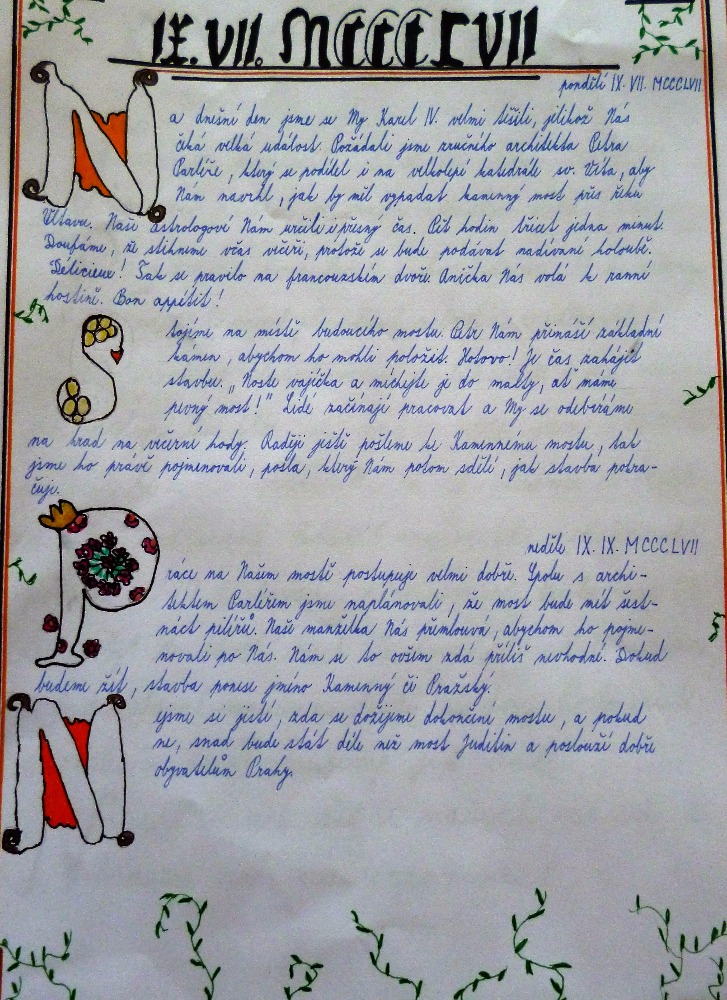 IX. VII. MCCCLVII
pondělí IX. VII. MCCCLVII
Na dnešní den jsme se My Karel IV. velmi těšili, jelikož Nás
čeká velká událost. Požádali jsme zručného architekta Petra
Parléře, který se podílel i na velkolepé katedrále sv. Víta, aby
Nám navrhl, jak by měl vypadat kamenný most přes řeku
Vltavu. Naši astrologové Nám určili i přesný čas. Pět hodin třicet jedna minut.
Doufáme, že stihneme včas večeři, protože se bude podávat nadívané holoubě.
Délicieux! Tak se pravilo na francouzském dvoře. Anička Nás volá k ranní
hostině. Bon appétit!
Stojíme na místě budoucího mostu. Petr Nám přináší základní
kámen, abychom ho mohli položit. Hotovo! Je čas zahájit
stavbu. „Noste vajíčka a míchejte je do malty, ať máme
pevný most!" Lidé začínají pracovat a My se odebíráme
na hrad na večerní hody. Raději ještě pošleme ke Kamennému mostu, tak
jsme ho právě pojmenovali, posla, který Nám potom sdělí, jak stavba pokra-
čuje.
neděle IX. IX. MCCCLVII
Práce na Našem mostě postupuje velmi dobře. Spolu s archi-
tektem Parléřem jsme naplánovali, že most bude mít šest-
náct pilířů. Naše manželka Nás přemlouvá, abychom ho pojme-
novali po Nás. Nám se to ovšem zdá příliš nevhodné. Dokud
budeme žít, stavba ponese jméno Kamenný či Pražský.
Nejsme si jistí, zda se dožijeme dokončení mostu, a pokud
ne, snad bude stát déle než most Juditin a poslouží dobře
obyvatelům Prahy.